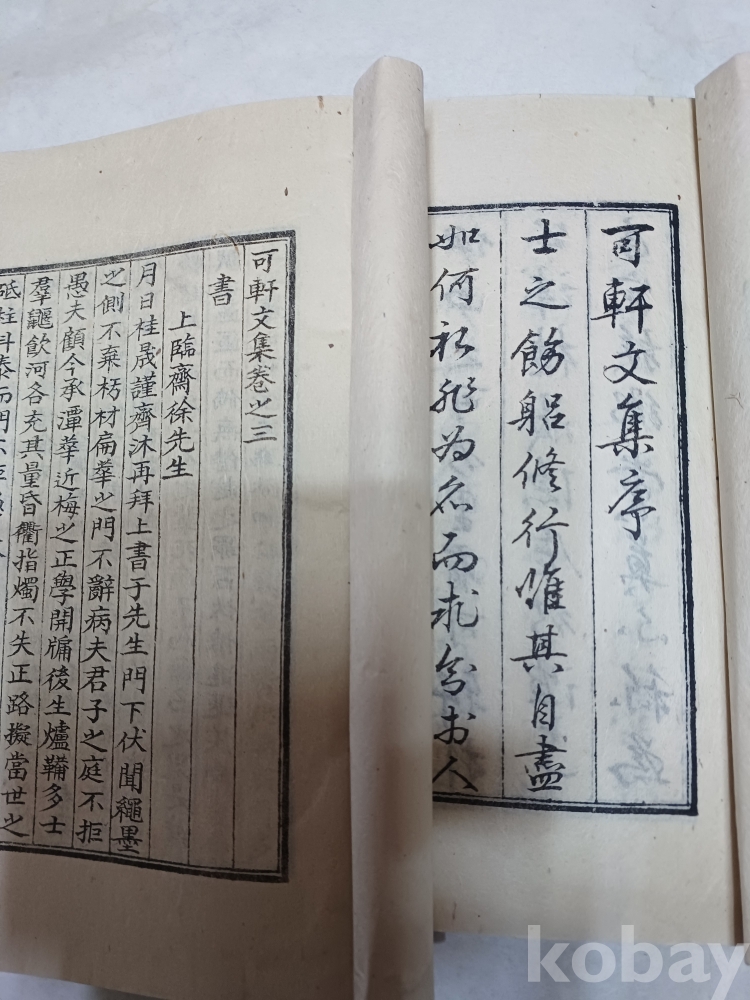 可軒文集序
士之飭躳修行唯其自盡
如何初非为名而求於人
可軒文集卷之三
書
上臨齋徐先生
月日桂晟謹齊沐再拜上書于先生門下伏聞繩墨
之側不棄朽材扁蕐之門不辭病夫君子之庭不拒
愚夫顧今承潭蕐近梅之正學開牖後生爐鞴多士
羣鼴飮河各充其量昏衢指燭不失正路擬當世之
砥柱斗泰而門不
kobay